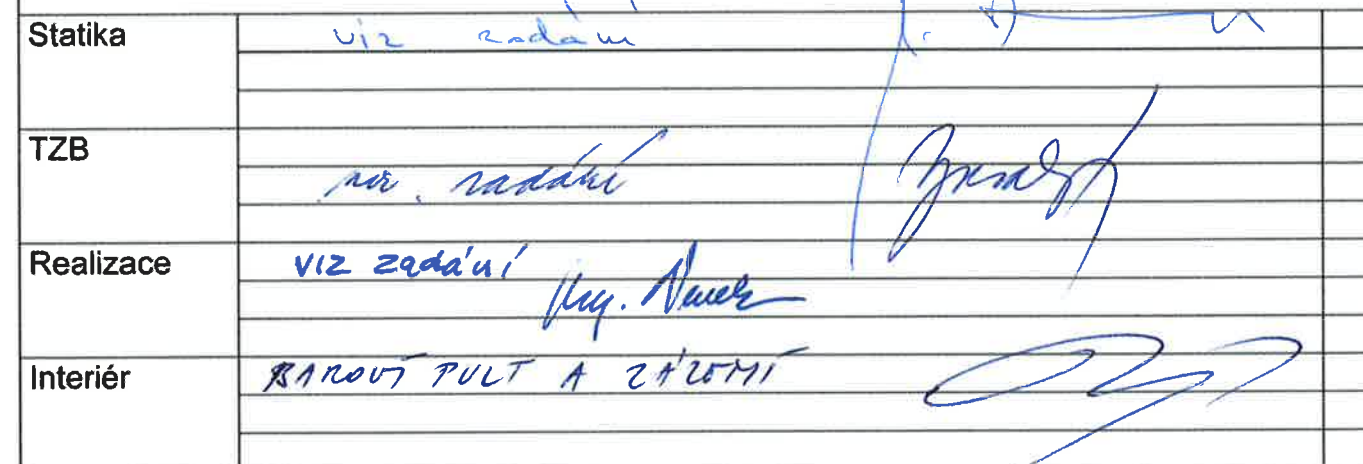 Statika viz zadání
TZB viz. zadání
Realizace viz zadání
Ing.
Interiér BAROVÝ PULT A ZÁZEMÍ